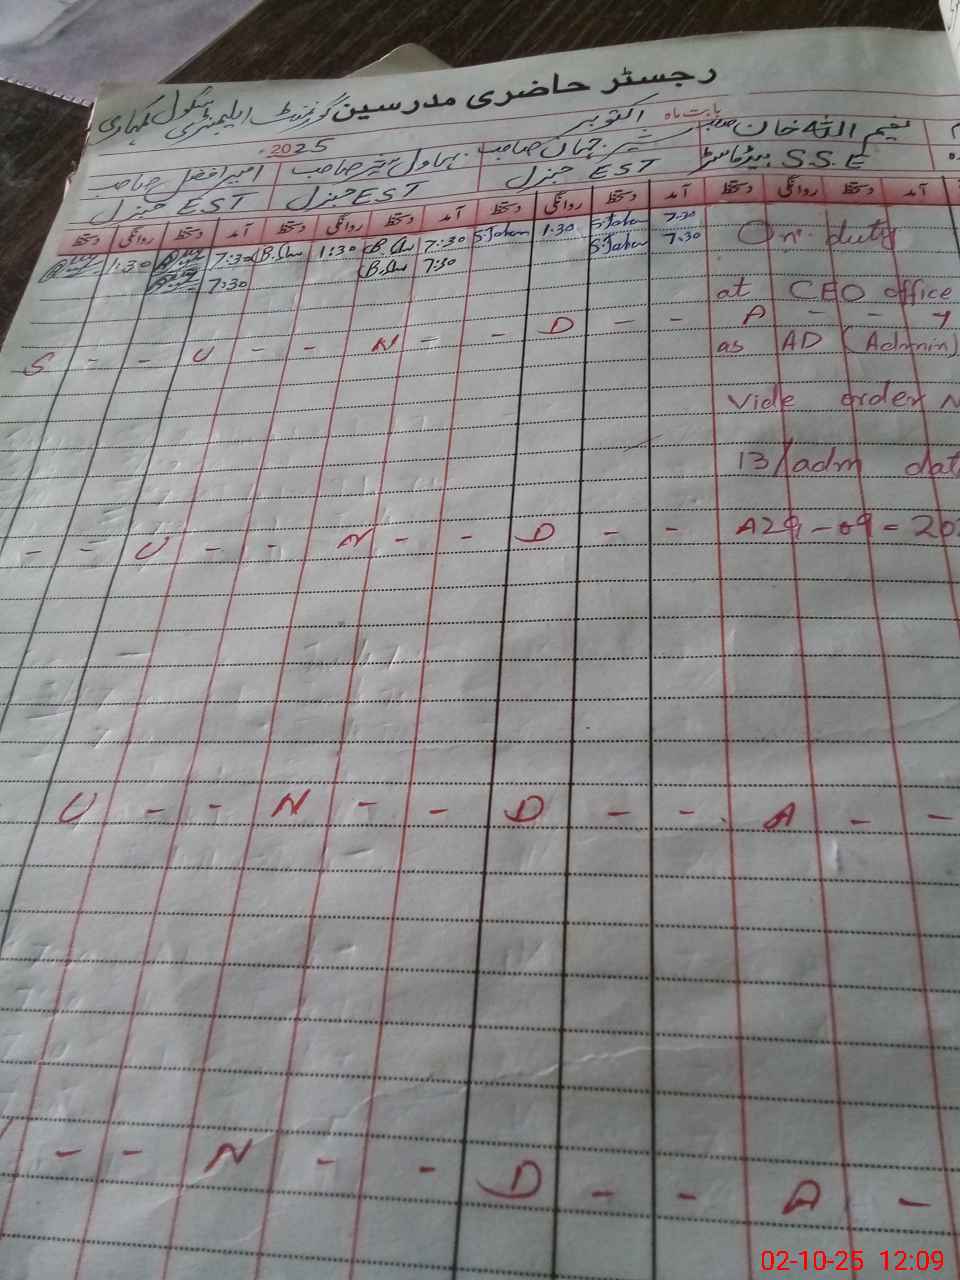 رجسٹر حاضری مدرسین گورنمنٹ ایلیمنٹری سکول
بابت ماہ اکتوبر 2025
نعیم اللہ خان صاحب شیر جہاں صاحب بہاول شیر صاحب امیر افضل صاحب
S.S.E ہیڈماسٹر EST جنرل EST جنرل EST جنرل
آمد دستخط روانگی دستخط آمد دستخط روانگی دستخط آمد دستخط روانگی دستخط آمد دستخط روانگی دستخط
1:30 7:30 B.Sher 1:30 B.Sher 7:30 S.Jahan 1:30 S.Jahan 7:30 On duty
7:30 B.Sher 7:30 S.Jahan 7:30
at CEO office
S - - U - - N - - D - - A - - Y
as AD (Admin)
Vide order N
13/adm dat
- - U - - N - - D - - A 29-09-202
U - - N - - D - - A - -
- - N - - D - - A -
02-10-25 12:09